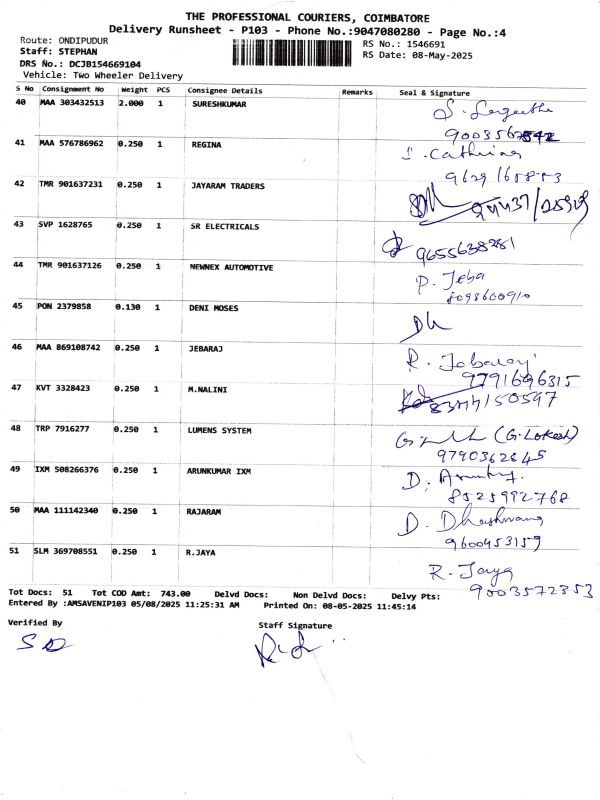 THE PROFESSIONAL COURIERS, COIMBATORE
Delivery Runsheet - P103 - Phone No.:9047080280 - Page No.:4
Route: ONDIPUDUR
RS No.: 1546691
Staff: STEPHAN
RS Date: 08-May-2025
DRS No.: DCJB154669104
Vehicle: Two Wheeler Delivery
S No Consignment No Weight PCS Consignee Details Remarks Seal & Signature
40 MAA 303432513 2.000 1 SURESHKUMAR
41 MAA 576786962 0.250 1 REGINA
42 TMR 901637231 0.250 1 JAYARAM TRADERS
43 SVP 1628765 0.250 1 SR ELECTRICALS
9655638281
44 TMR 901637126 0.250 1 NEWNEX AUTOMOTIVE
P. Jeba
8098600910
45 PON 2379858 0.130 1 DENI MOSES
46 MAA 869108742 0.250 1 JEBARAJ
R. Jebaraj
9791696315
47 KVT 3328423 0.250 1 M.NALINI
48 TRP 7916277 0.250 1 LUMENS SYSTEM
(G.Lokesh)
9790362845
49 IXM 508266376 0.250 1 ARUNKUMAR IXM
8525992768
50 MAA 111142340 0.250 1 RAJARAM
9600453159
51 SLM 369708551 0.250 1 R.JAYA
R. Jaya
9003572353
Tot Docs: 51 Tot COD Amt: 743.00 Delvd Docs: Non Delvd Docs: Delvy Pts:
Entered By :AMSAVENIP103 05/08/2025 11:25:31 AM Printed On: 08-05-2025 11:45:14
Verified By
Staff Signature